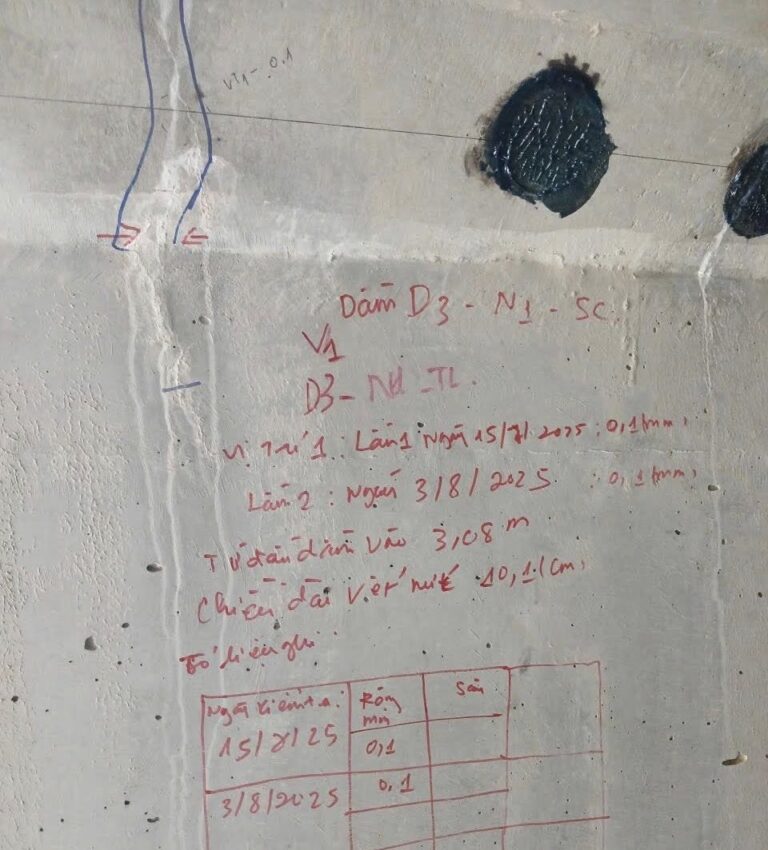 VT1 - 0.1
Dầm D3 - N1 - SC.
V1
D3 - N1 - TL.
Vị Trí 1 : Lần 1 Ngày 15/7/2025 : 0,1 mm,
Lần 2 : Ngày 3/8/2025 : 0,1 mm,
Từ đầu dầm vào 3,08 m
Chiều dài vết nứt 10,1 cm,
Số liệu ghi :
Ngày kiểm tra: Rộng mm Sâu
15/7/25 0,1
3/8/2025 0.1